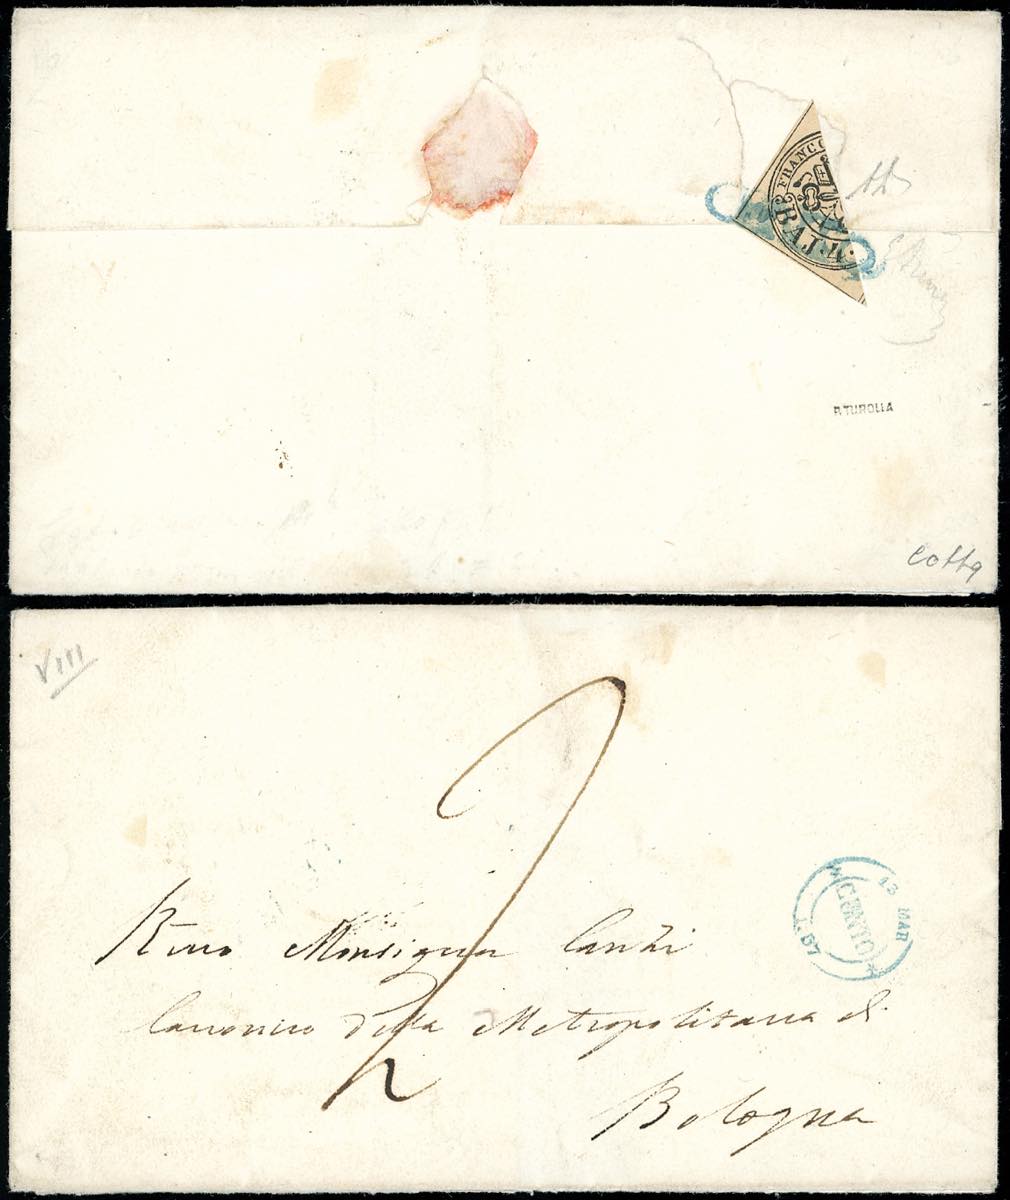 FRANCO
BAJ. 4.
P. TUROLLA
Cotta
VIII
2
13 MAR
CENTO
Rmo Monsignor
Canonico della Metropolitana di
Bologna